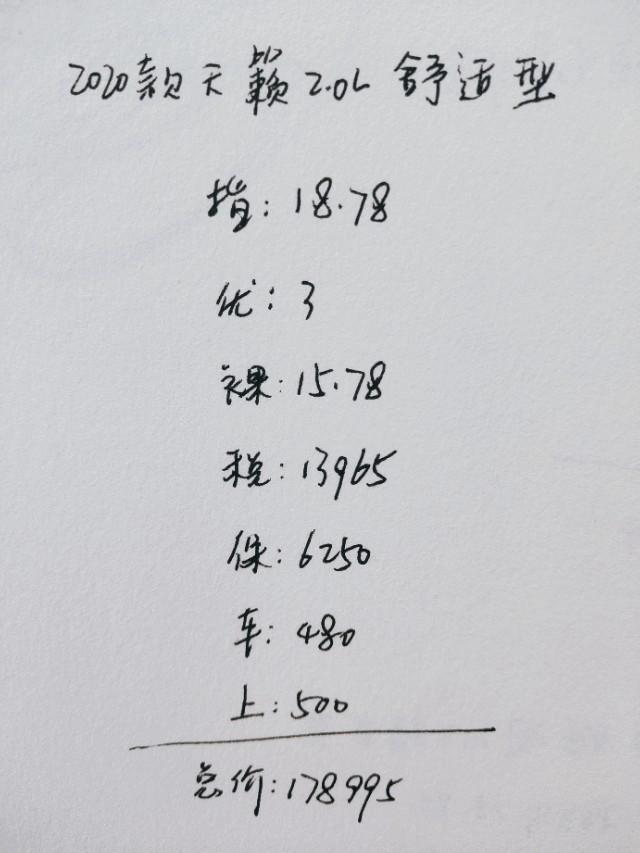 2020款天籁2.0L 舒适型
指: 18.78
优: 3
裸: 15.78
税: 13965
保: 6250
车: 480
上: 500
总价: 178995